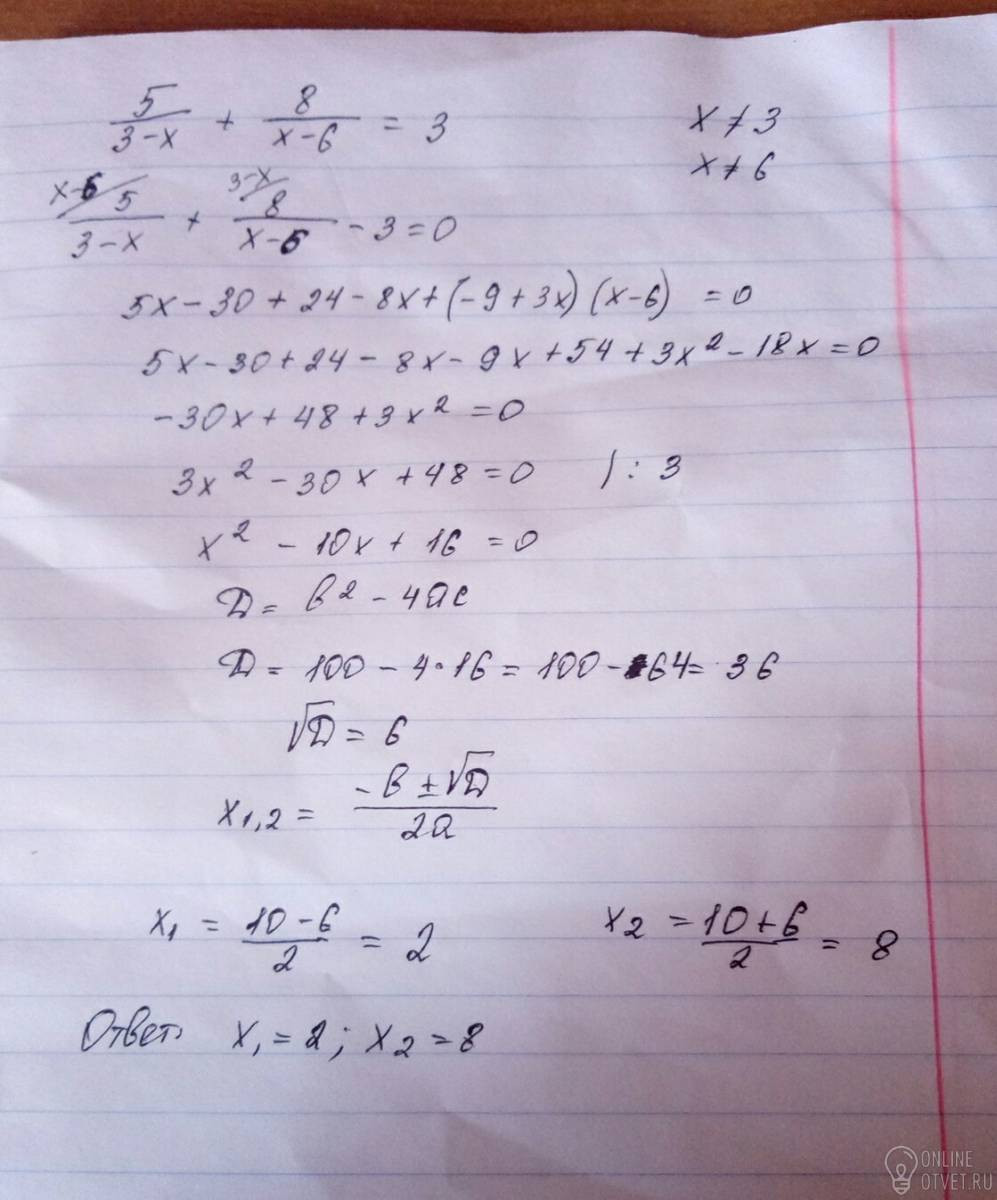 5/(3-x) + 8/(x-6) = 3    x ≠ 3
x ≠ 6
x-6/ 5/(3-x) + 3-x/ 8/(x-6) - 3 = 0
5x - 30 + 24 - 8x + (-9 + 3x)(x-6) = 0
5x - 30 + 24 - 8x - 9x + 54 + 3x² - 18x = 0
-30x + 48 + 3x² = 0
3x² - 30x + 48 = 0    | : 3
x² - 10x + 16 = 0
D = b² - 4ac
D = 100 - 4·16 = 100 - 64 = 36
√D = 6
x₁,₂ = (-b ± √D)/2a
x₁ = (10 - 6)/2 = 2    x₂ = (10 + 6)/2 = 8
Ответ: x₁ = 2; x₂ = 8
ONLINE
OTVET.RU